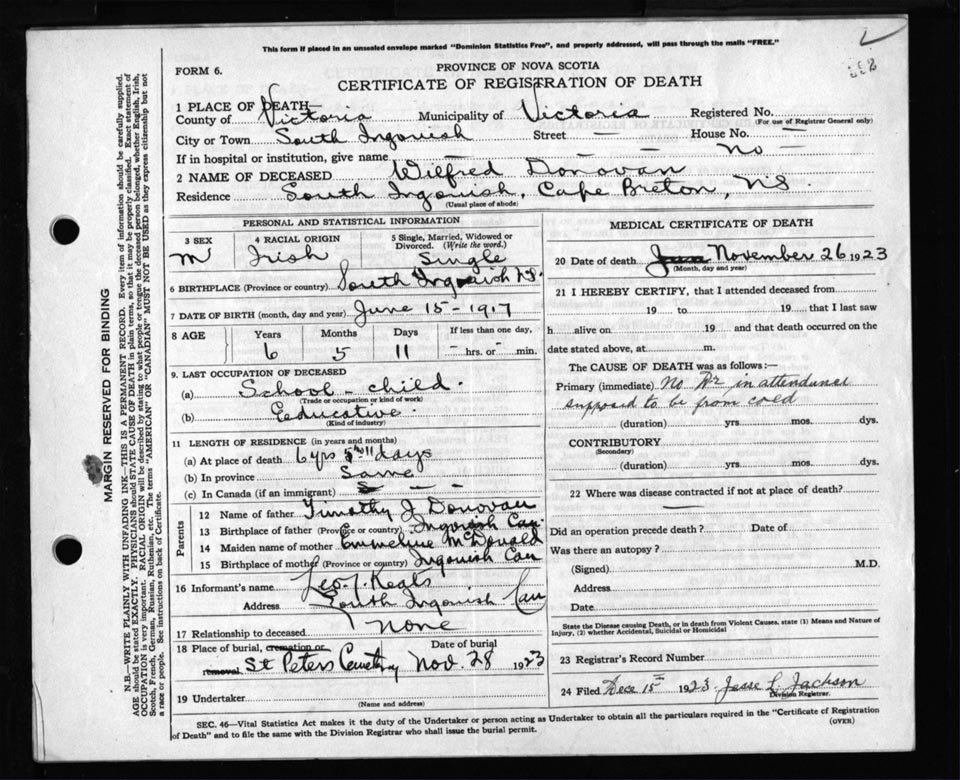 This form if placed in an unsealed envelope marked "Dominion Statistics Free", and properly addressed, will pass through the mails "FREE."
PROVINCE OF NOVA SCOTIA
FORM 6.
CERTIFICATE OF REGISTRATION OF DEATH
1 PLACE OF DEATH—
County of Victoria Municipality of Victoria Registered No.
(For use of Registrar General only)
City or Town South Ingonish Street — House No. —
If in hospital or institution, give name — — — No —
2 NAME OF DECEASED Wilfred Donovan
Residence South Ingonish, Cape Breton, NS.
(Usual place of abode)
PERSONAL AND STATISTICAL INFORMATION
3 SEX 4 RACIAL ORIGIN 5 Single, Married, Widowed or Divorced. (Write the word.)
M Irish Single
6 BIRTHPLACE (Province or country) South Ingonish N.S.
7 DATE OF BIRTH (month, day and year) June 15 - 1917
8 AGE Years Months Days If less than one day,
6 5 11 — hrs. or — min.
9. LAST OCCUPATION OF DECEASED
(a) School - child.
(Trade or occupation or kind of work)
(b) Eeducative.
(Kind of industry)
11 LENGTH OF RESIDENCE (in years and months)
(a) At place of death 6 yrs 5 mo 11 days
(b) In province Same
(c) In Canada (if an immigrant) — —
Parents
12 Name of father Timothy J Donovan
13 Birthplace of father (Province or country) Ingonish Can
14 Maiden name of mother Emmeline McDonald
15 Birthplace of mother (Province or country) Ingonish Can
16 Informant's name Leo. J. Keals
Address South Ingonish Can
17 Relationship to deceased None
18 Place of burial, cremation or removal St Peters Cemetry Date of burial Nov. 28 1923
19 Undertaker
(Name and address)
MEDICAL CERTIFICATE OF DEATH
20 Date of death June November 26 1923
(Month, day and year)
21 I HEREBY CERTIFY, that I attended deceased from
19 to 19 that I last saw
h alive on 19 and that death occurred on the
date stated above, at m.
The CAUSE OF DEATH was as follows:—
Primary (immediate) No Dr in attendance
supposed to be from cold
(duration) yrs. mos. dys.
CONTRIBUTORY
(Secondary)
(duration) yrs. mos. dys.
22 Where was disease contracted if not at place of death?
—
Did an operation precede death? Date of
Was there an autopsy?
(Signed) M.D.
Address
Date
State the Disease causing Death, or in death from Violent Causes, state (1) Means and Nature of
Injury, (2) whether Accidental, Suicidal or Homicidal
23 Registrar's Record Number
24 Filed Dece 15th 1923 Jesse L. Jackson
Division Registrar.
SEC. 46—Vital Statistics Act makes it the duty of the Undertaker or person acting as Undertaker to obtain all the particulars required in the "Certificate of Registration
of Death" and to file the same with the Division Registrar who shall issue the burial permit.
(OVER)
MARGIN RESERVED FOR BINDING
N.B.—WRITE PLAINLY WITH UNFADING INK—THIS IS A PERMANENT RECORD. Every item of information should be carefully supplied.
AGE should be stated EXACTLY. PHYSICIANS should STATE CAUSE OF DEATH in plain terms, so that it may be properly classified. Exact statement of
OCCUPATION is very important. RACIAL ORIGIN will be described by stating to what people or tongue the deceased person belonged, whether English, Irish,
Scotch, French, German, Russian, Ruthenian, etc. The terms "AMERICAN" OR "CANADIAN" MUST NOT BE USED as they express citizenship but not
a race or people. See instructions on back of Certificate.